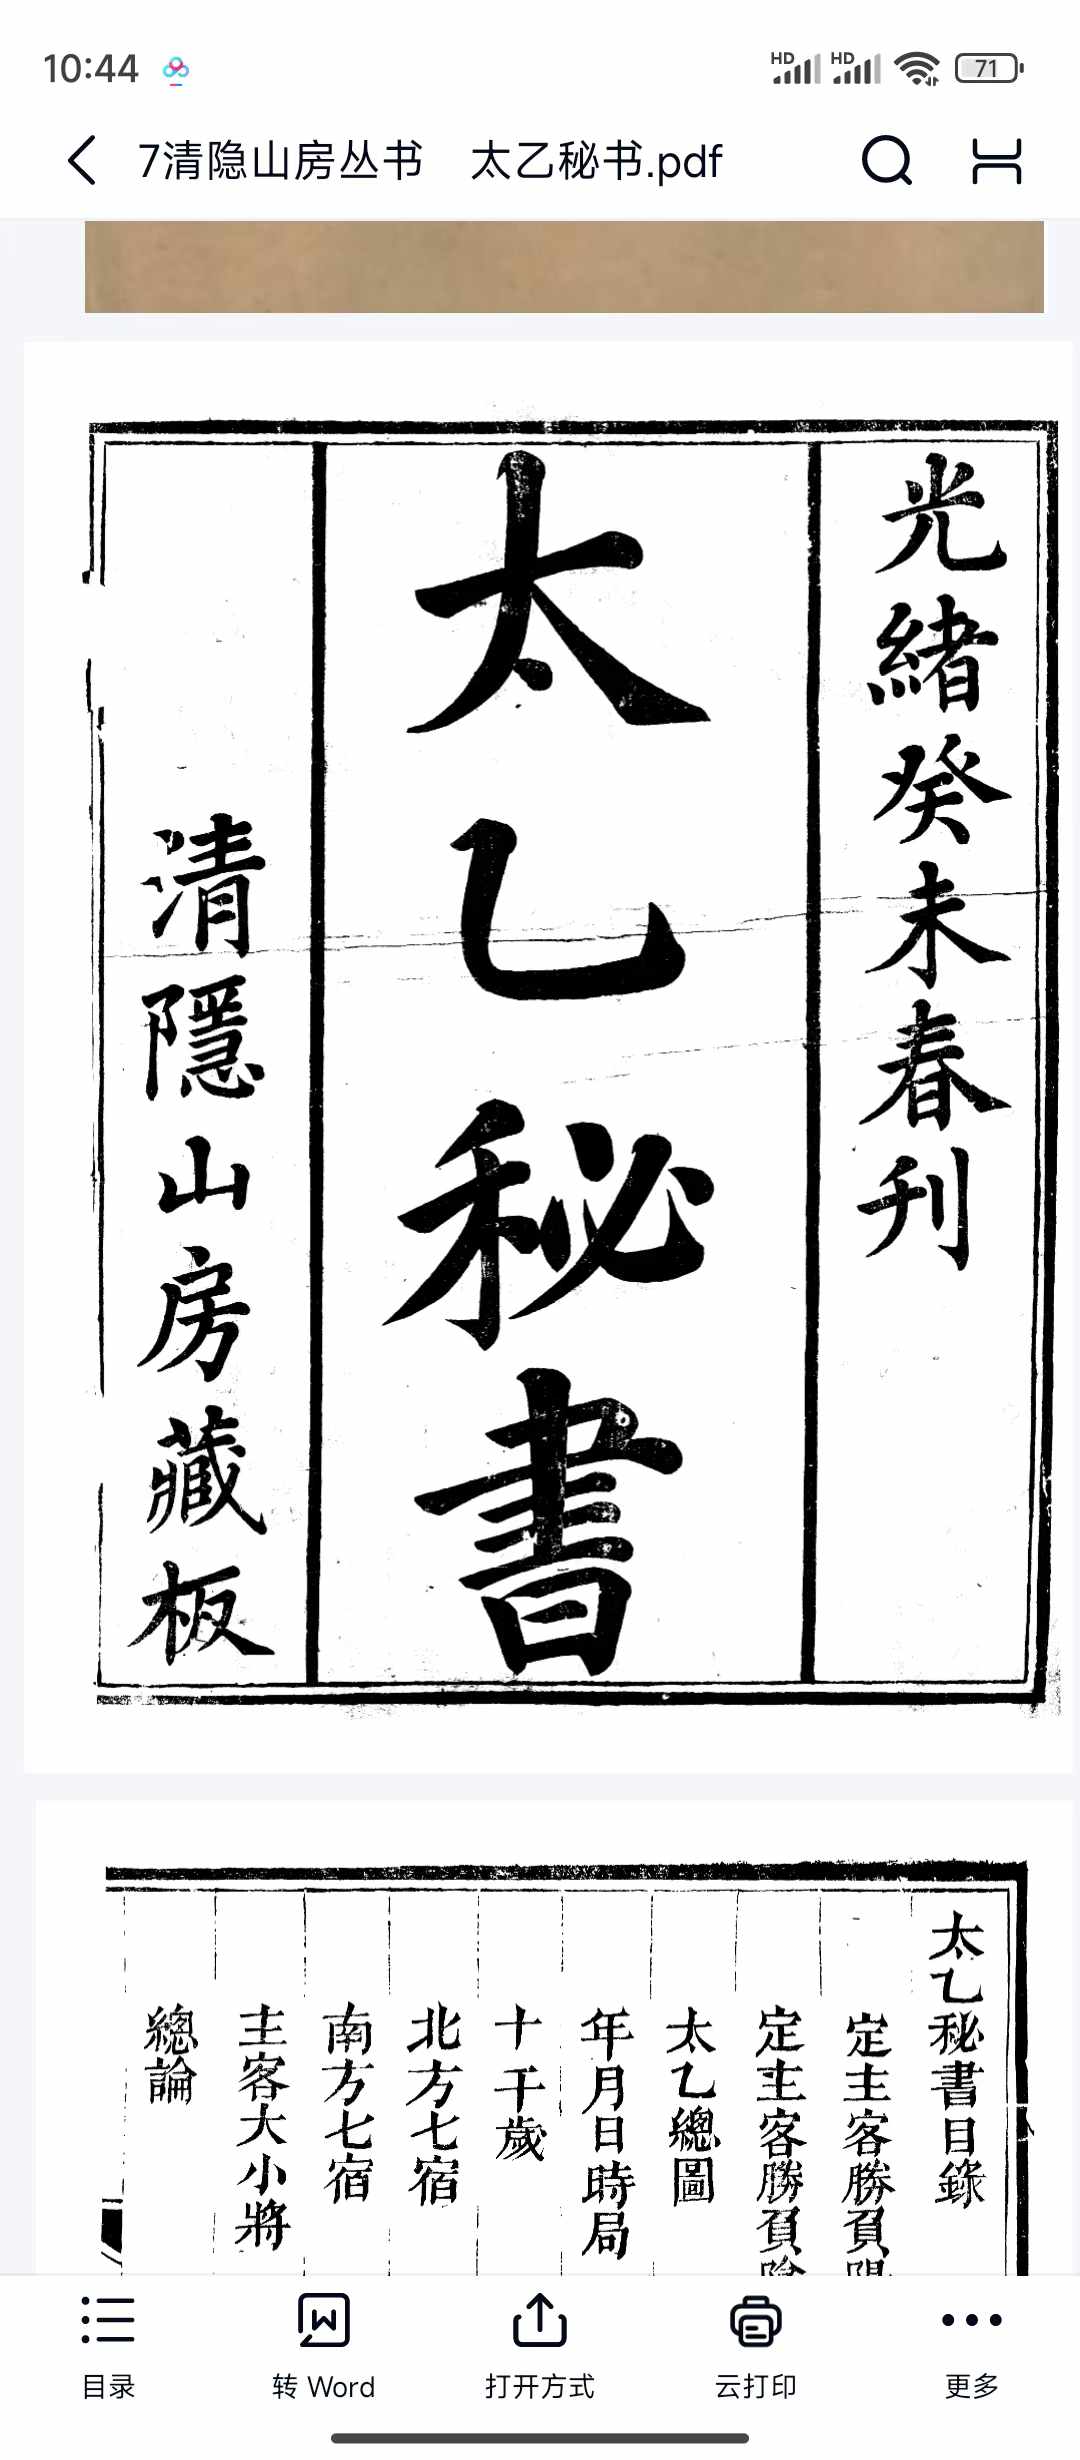 10:44
HD HD 71
7清隐山房丛书 太乙秘书.pdf
光緒癸未春刊
太乙秘書
清隱山房藏板
太乙秘書目錄
定主客勝負陽
定主客勝負陰
太乙總圖
年月日時局
十干歲
北方七宿
南方七宿
主客大小將
總論
目录
转 Word
打开方式
云打印
更多